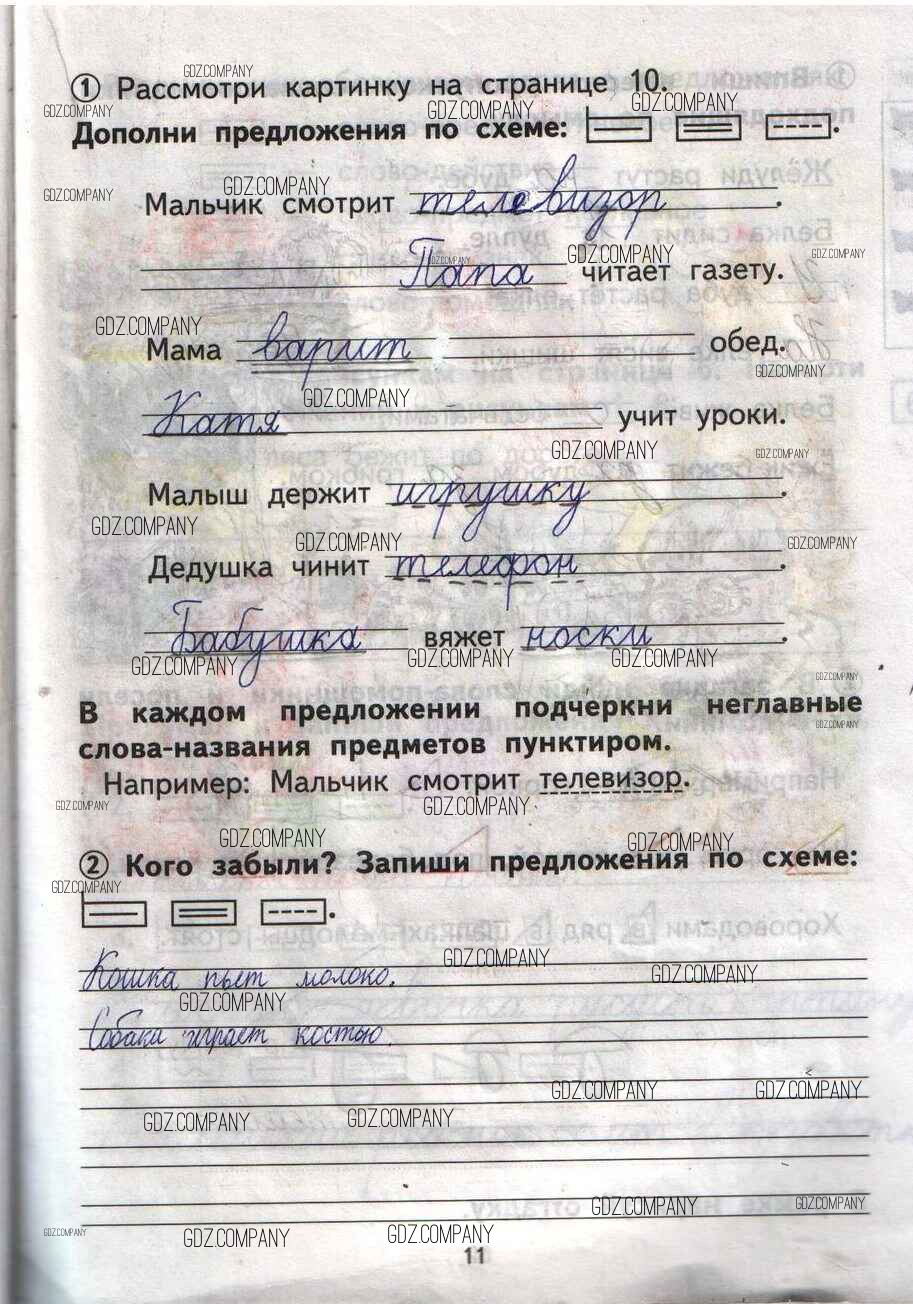 ① Рассмотри картинку на странице 10.
Дополни предложения по схеме:
Мальчик смотрит телевизор.
Папа читает газету.
Мама варит обед.
Катя учит уроки.
Малыш держит игрушку.
Дедушка чинит телефон.
Бабушка вяжет носки.
В каждом предложении подчеркни неглавные
слова-названия предметов пунктиром.
Например: Мальчик смотрит телевизор.
② Кого забыли? Запиши предложения по схеме:
Кошка пьет молоко.
Собака играет костью.
11
GDZ.COMPANY